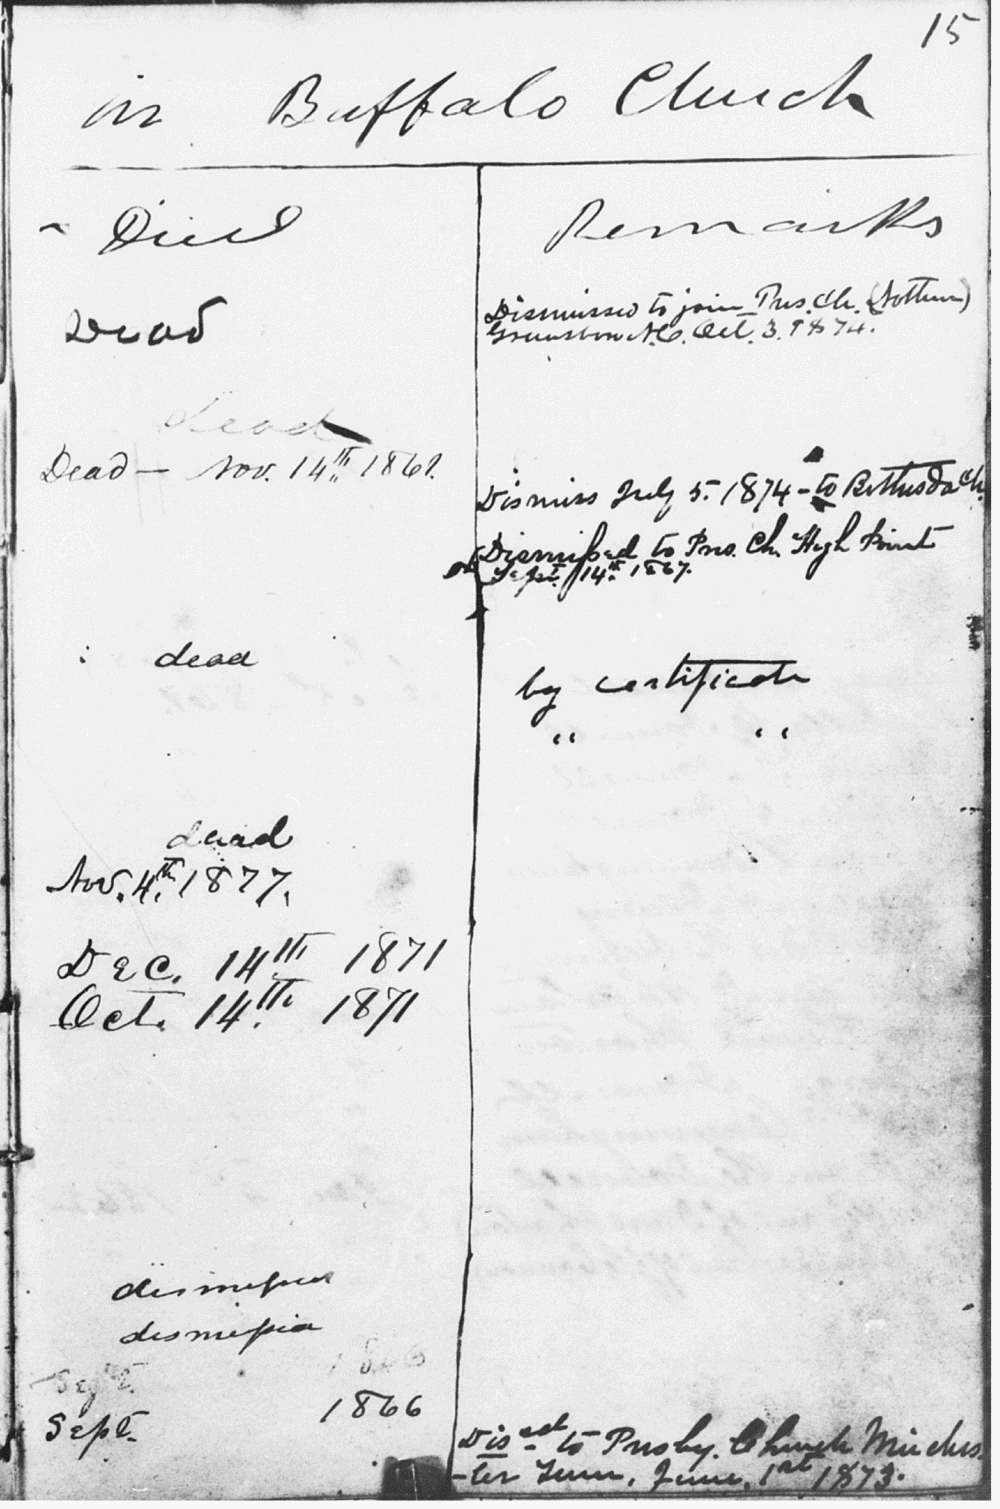 15
in Buffalo Church
Died
Remarks
Dead
Dismissed to join Pres. Ch. (Nothern)
Greensboro N.C. Oct. 3. 1874.
dead
Dead — Nov. 14th 186
Dismiss July 5. 1874 - to Bethesda Ch.
Dismissed to Pres. Ch. High Point
Sept. 14th 1867.
dead
by certificate
" "
dead
Nov. 4th. 1877.
Dec. 14th 1871
Oct. 14th. 1871
dismissed
dismissed
Sept.
Sept. 1866
Dis.ed to Presby. Church Minches
-ter Tenn. June. 1st 1873.